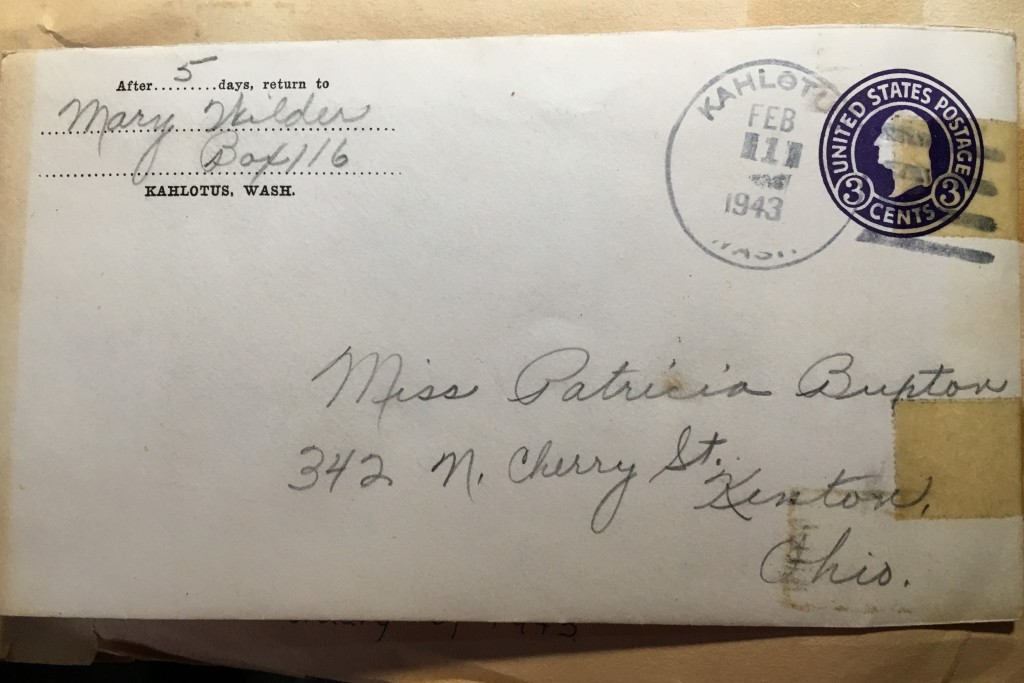 After...5...days, return to
Mary Wilder
Box 116
KAHLOTUS, WASH.
KAHLOTUS
FEB
11
1943
WASH
UNITED STATES POSTAGE
3 CENTS 3
Miss Patricia Bupton
342 N. Cherry St.
Kenton,
Ohio.
1943